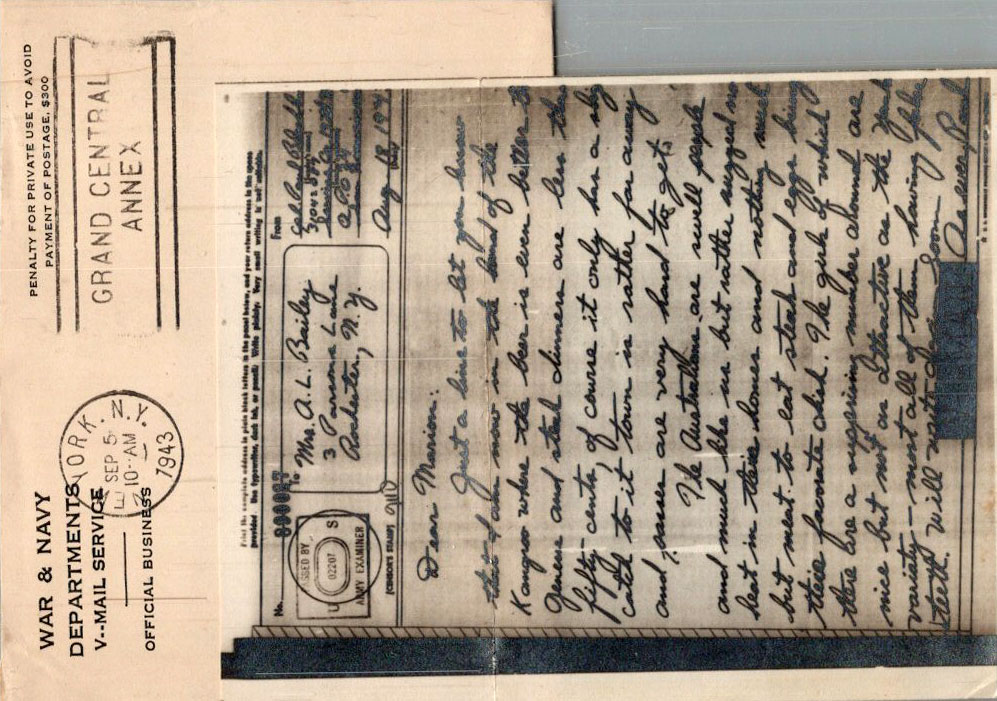 WAR & NAVY
DEPARTMENTS
V--MAIL SERVICE
OFFICIAL BUSINESS
PENALTY FOR PRIVATE USE TO AVOID
PAYMENT OF POSTAGE, $300
GRAND CENTRAL
ANNEX
YORK, N.Y.
SEP 5
10-AM
1943
Print the complete address in plain block letters in the panel below, and your return address in the space
provided. Use typewriter, dark ink, or pencil. Write plainly. Very small writing is not suitable.
No.
To
From
PASSED BY
U S
02207
ARMY EXAMINER
(CENSOR'S STAMP)
Mrs. A. L. Bailey
3 Parsons Lane
Rochester, N.Y.
Aug 18 194
(Date)
Dear Marion:
Just a line to let you know
that I am now in the land of the
Kangroo where the beer is even better th
Genese and steak dinners are less than
fifty-cents, of course it only has a big
catch to it, town is rather far away
and passes are very hard to get.
The Australians are swell people
and much like us but rather rugged no
heat in their homes and nothing much
but meat to eat steak and eggs being
their favorate dish. The girls of which
there are a suprising number around are
nice but not as attractive as the Yank
variaty - most all of them having false
teeth. Will write again soon
As ever Paul